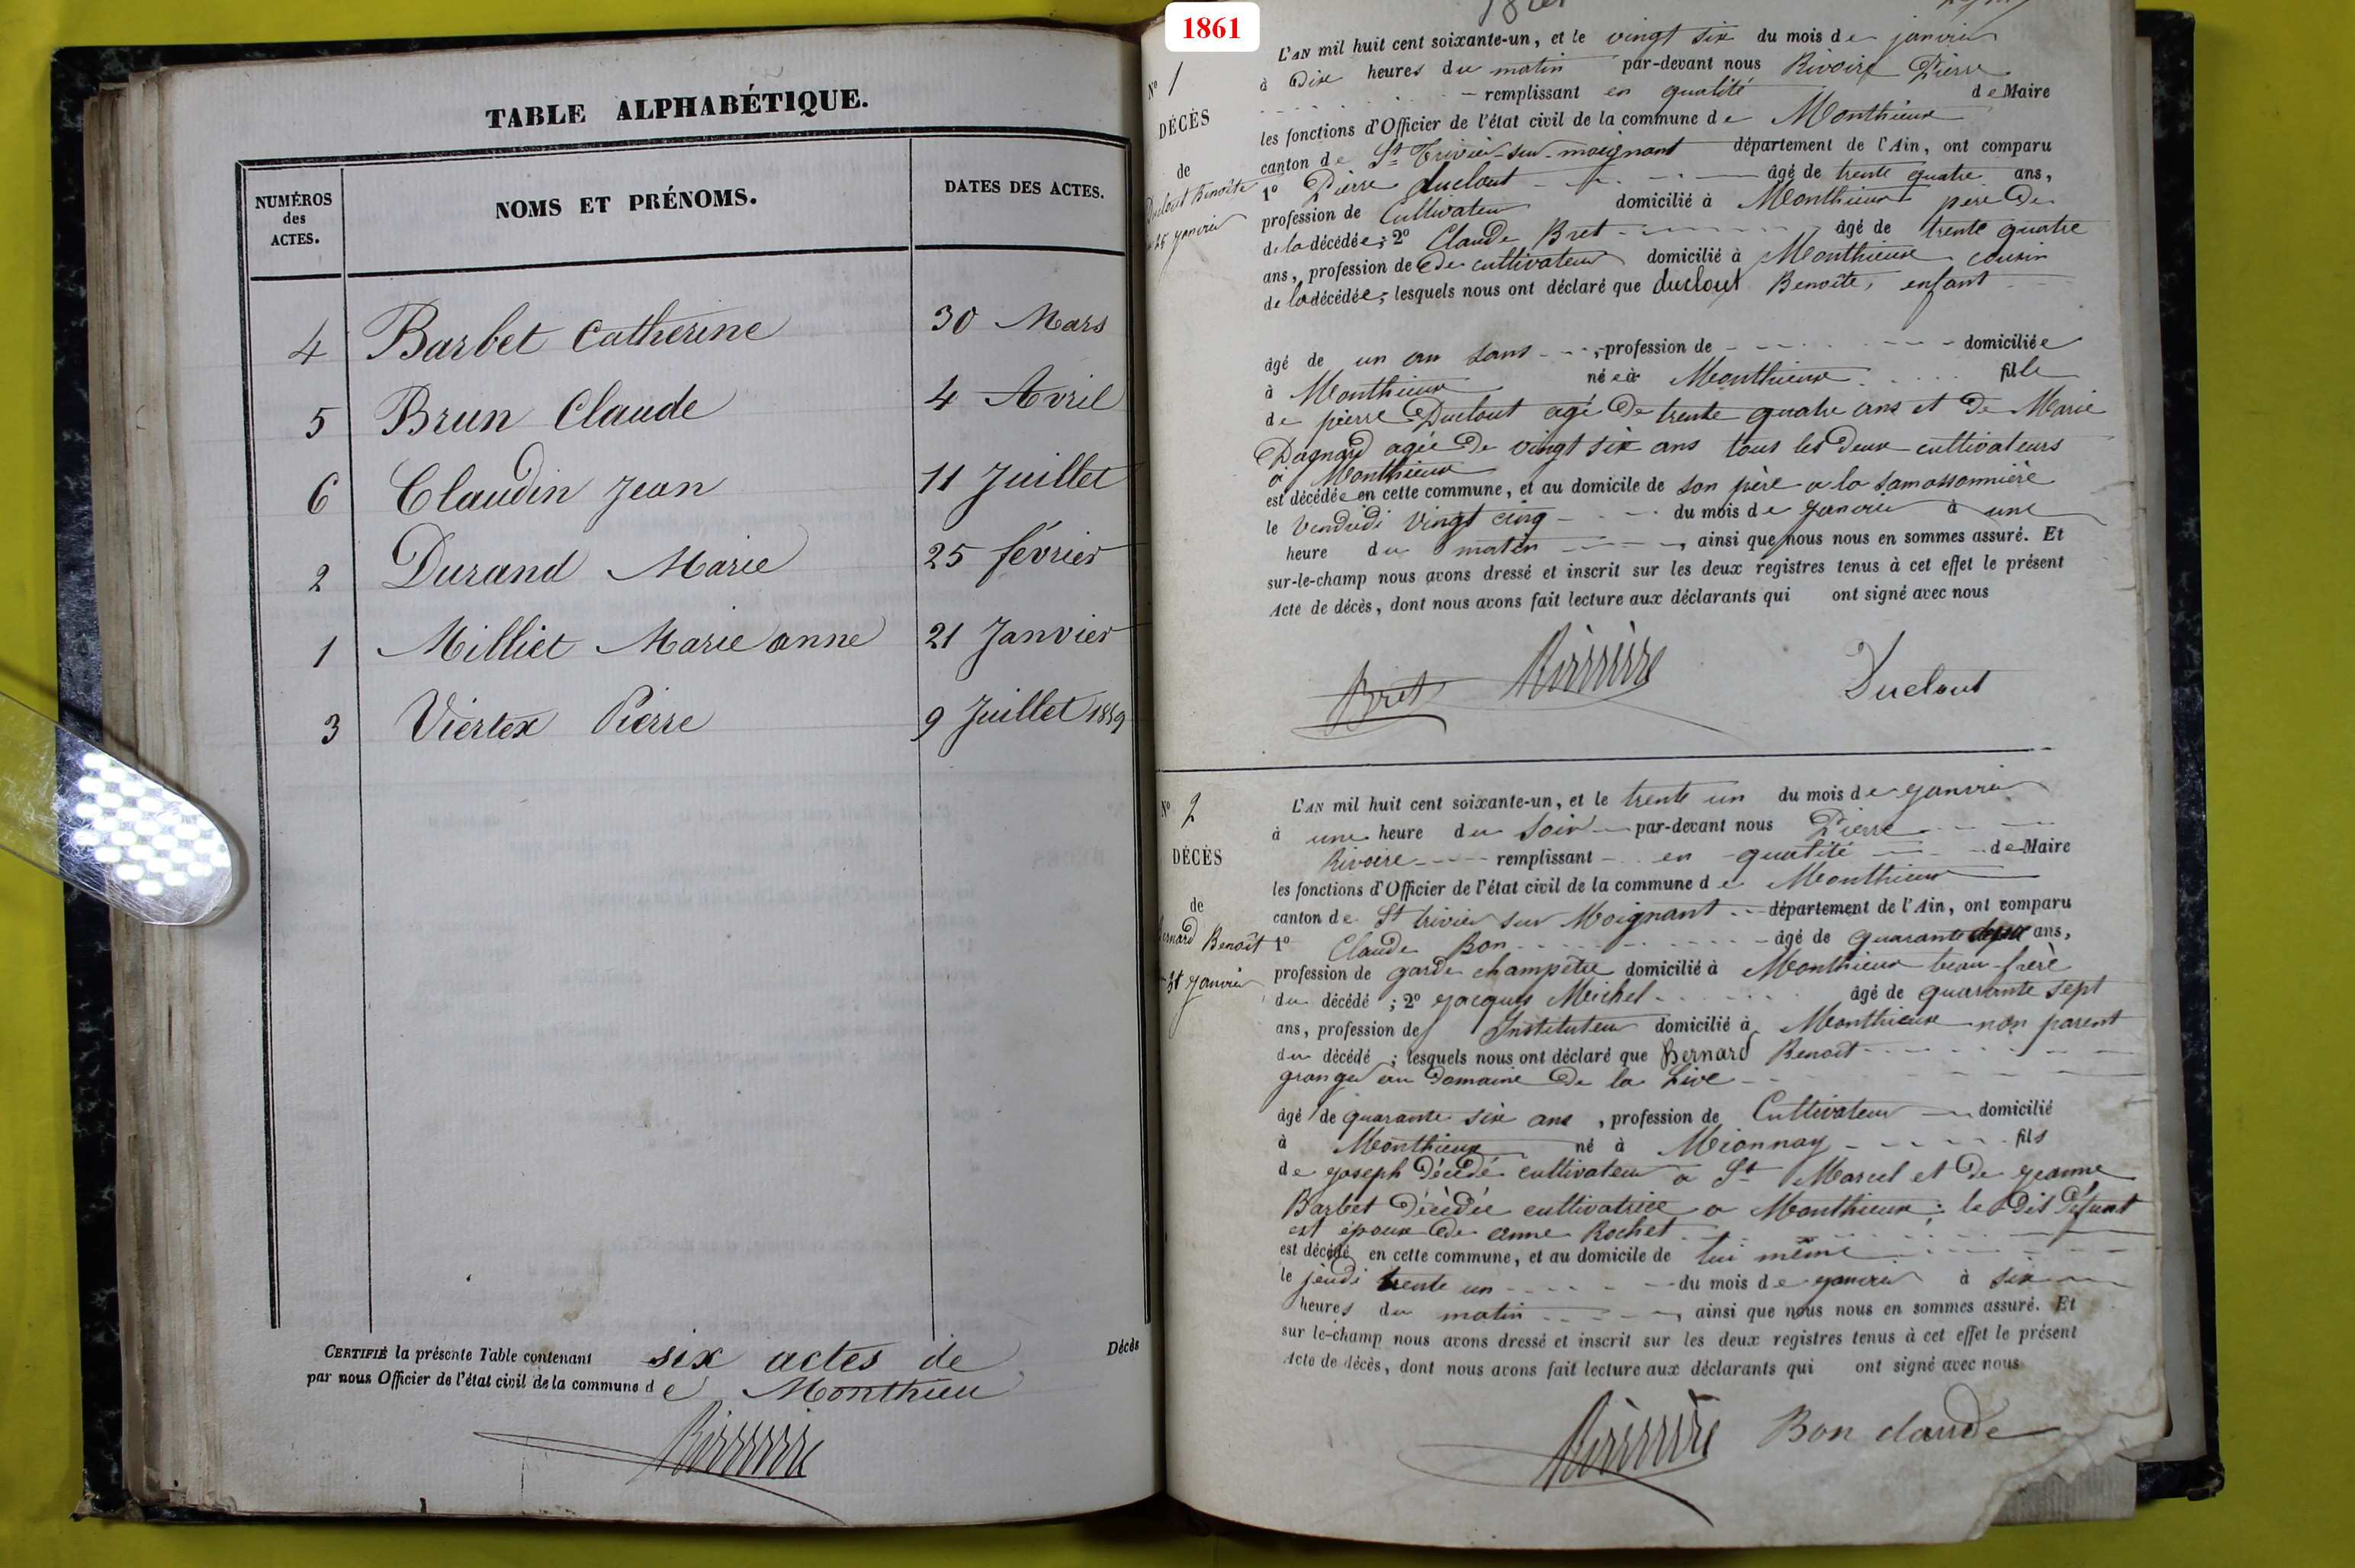 1861
TABLE ALPHABÉTIQUE.
NUMÉROS
des
ACTES.
NOMS ET PRÉNOMS.
DATES DES ACTES.
4 Barbet Catherine 30 Mars
5 Brun Claude 4 Avril
6 Claudin Jean 11 Juillet
2 Durand Marie 25 février
1 Milliet Marie anne 21 Janvier
3 Viertex Pierre 9 Juillet 1859
CERTIFIÉ la présente Table contenant six actes de Décès
par nous Officier de l'état civil de la commune de Monthieu
N° 1
DÉCÈS
de
Duclout Benoîte
25 janvier
L'AN mil huit cent soixante-un, et le vingt six du mois de janvier
à Dix heures du matin par-devant nous Rivoire Pierre
remplissant en qualité de Maire
les fonctions d'Officier de l'état civil de la commune de Monthieux
canton de St Trivier-sur-moignant département de l'Ain, ont comparu
1° Pierre duclout âgé de trente quatre ans,
profession de Cultivateur domicilié à Monthieux père De
de la décédée; 2° Claude Bret âgé de trente quatre
ans, profession de De cultivateur domicilié à Monthieux cousin
de la décédée; lesquels nous ont déclaré que duclout Benoîte, enfant
âgé de un an sans, profession de domiciliée
à Monthieux née à Monthieux fille
de pierre Duclout agé De trente quatre ans et De Marie
Dagnard agée De vingt six ans tous les Deux cultivateurs
à Monthieux
est décédée en cette commune, et au domicile de son père a la Samassonnière
le Vendredi Vingt cinq du mois de Janvier à une
heure du matin, ainsi que nous nous en sommes assuré. Et
sur-le-champ nous avons dressé et inscrit sur les deux registres tenus à cet effet le présent
Acte de décès, dont nous avons fait lecture aux déclarants qui ont signé avec nous
Bret Rivoire Duclout
N° 2
DÉCÈS
de
Bernard Benoît
31 Janvier
L'AN mil huit cent soixante-un, et le trente un du mois de janvier
à une heure du soir par-devant nous Pierre
Rivoire remplissant en qualité de Maire
les fonctions d'Officier de l'état civil de la commune de Monthieux
canton de St trivier sur Moignant département de l'Ain, ont comparu
1° Claude Bon âgé de quarante deux ans,
profession de garde champêtre domicilié à Monthieux beau-frère
du décédé; 2° Jacques Meichel âgé de quarante sept
ans, profession de Instituteur domicilié à Monthieux non parent
du décédé; lesquels nous ont déclaré que Bernard Benoît
granger au Domaine De la Live
âgé de quarante six ans, profession de Cultivateur domicilié
à Monthieux né à Mionnay fils
de Joseph Décédé cultivateur a St Marcel et De Jeanne
Barbet Décèdée cultivatrice a Monthieux: le Dit Défunt
est époux De anne Rochet
est décédé en cette commune, et au domicile de lui même
le jeudi trente un du mois de janvier à six
heures du matin, ainsi que nous nous en sommes assuré. Et
sur le-champ nous avons dressé et inscrit sur les deux registres tenus à cet effet le présent
Acte de décès, dont nous avons fait lecture aux déclarants qui ont signé avec nous
Rivoire Bon claude